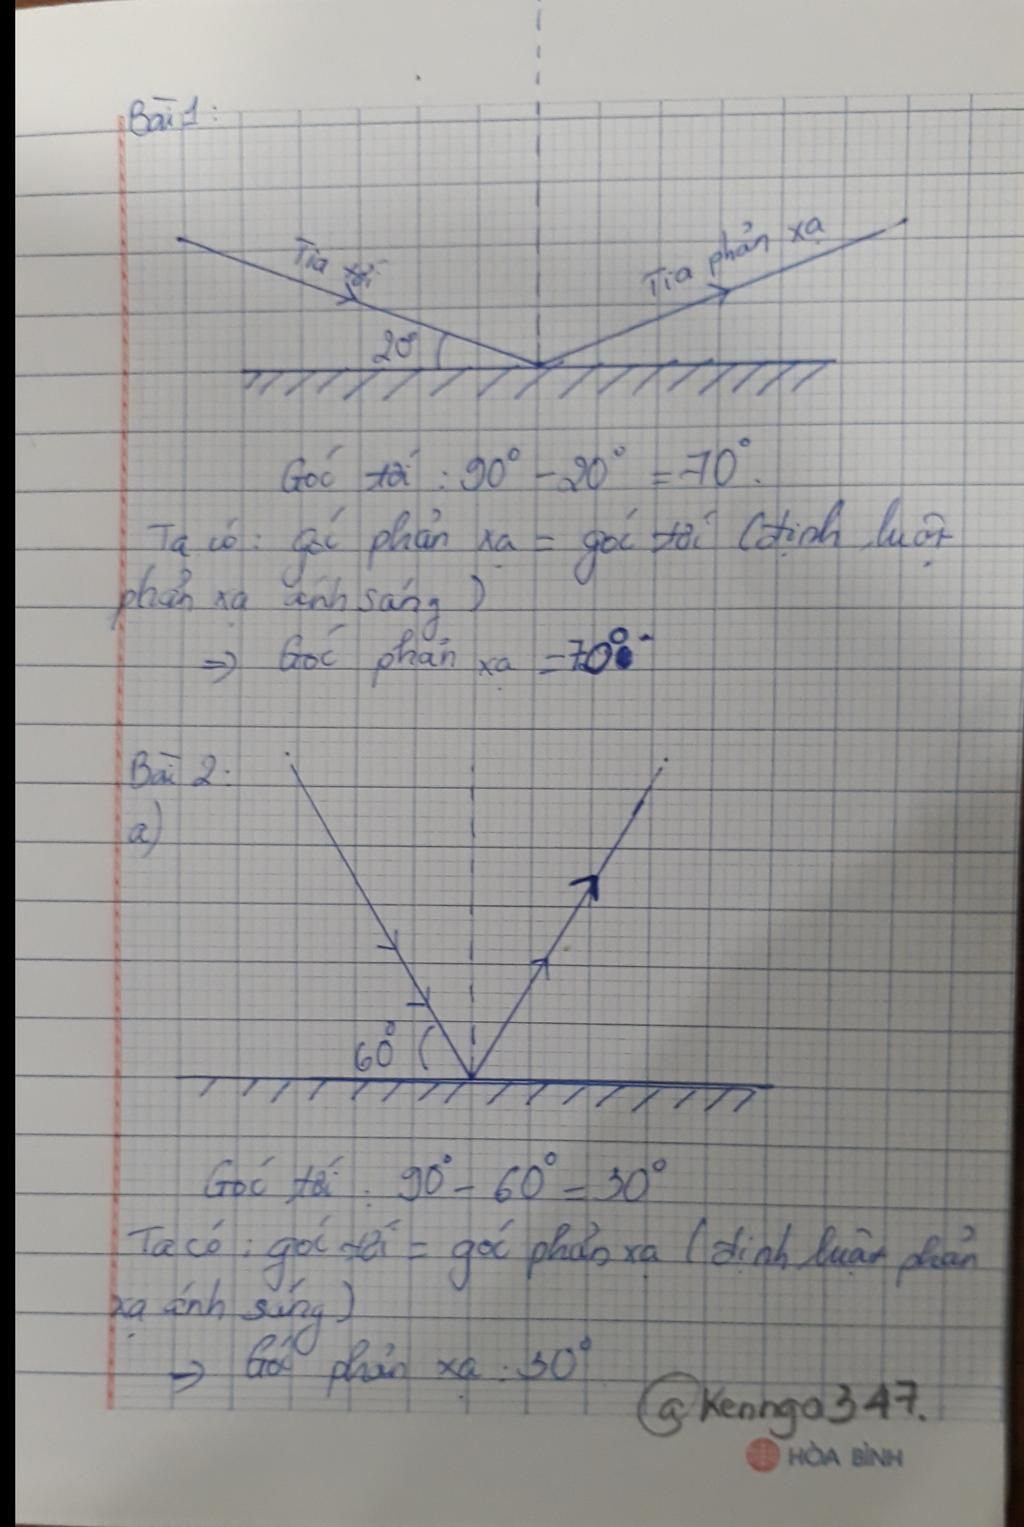 Bài 1:
Tia tới
Tia phản xạ
20°
Góc tới : 90° - 20° = 70°.
Ta có: góc phản xạ = góc tới (định luật
phản xạ ánh sáng)
=> Góc phản xạ = 70°
Bài 2:
a)
60°
Góc tới : 90° - 60° = 30°
Ta có : góc tới = góc phản xạ (định luật phản
xạ ánh sáng)
=> Góc phản xạ : 30°
@Kennga347.
HÒA BÌNH